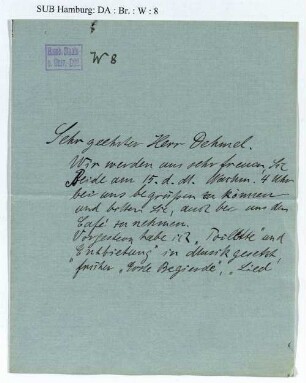 SUB Hamburg: DA : Br. : W : 8
W 8
Sehr geehrter Herr Dehmel.
Wir werden uns sehr freuen, Sie
Beide am 15. d. M. Nachm. 4 Uhr
bei uns begrüßen zu können
und bitten Sie, auch bei uns den
Café zu nehmen.
Vorgestern habe ich „Toilette" und
„Entbietung" in Musik gesetzt,
früher „Begierde", „Lied